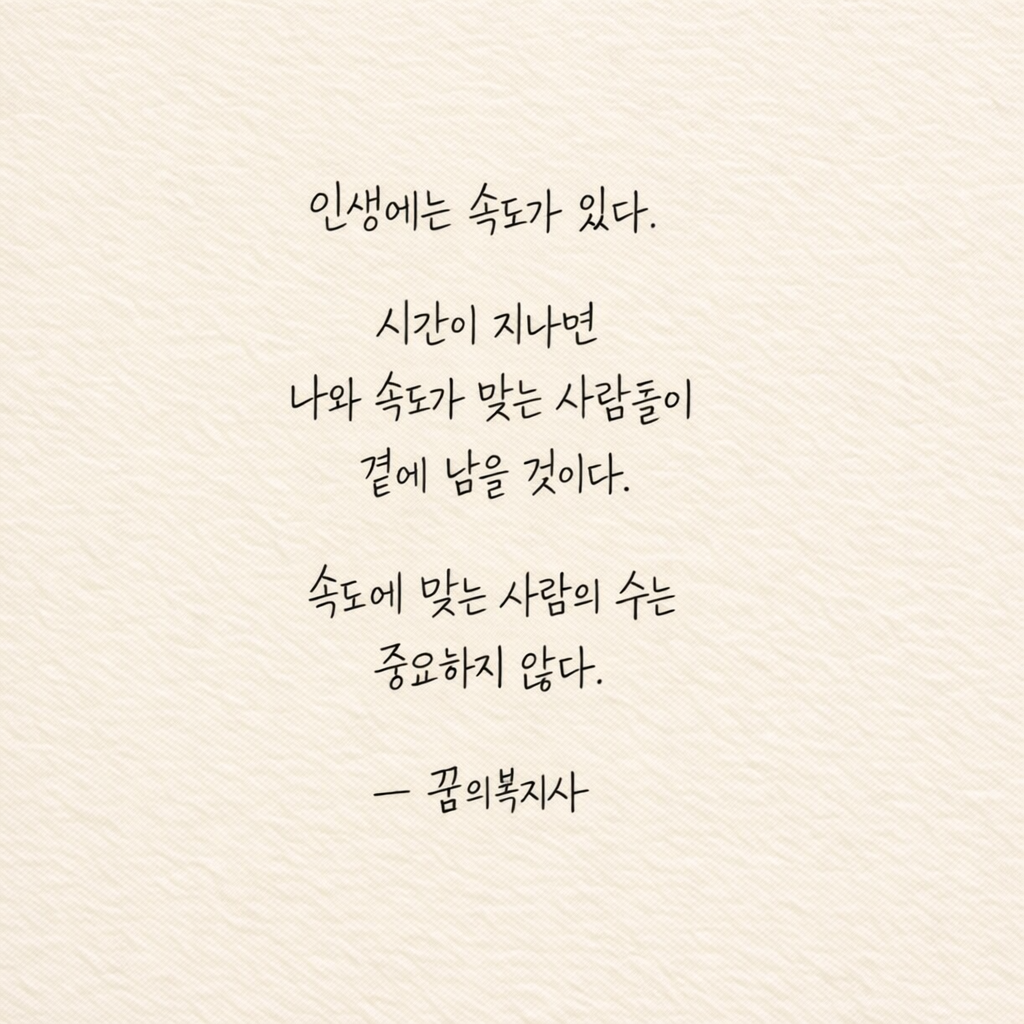 인생에는 속도가 있다.
시간이 지나면
나와 속도가 맞는 사람들이
곁에 남을 것이다.
속도에 맞는 사람의 수는
중요하지 않다.
— 꿈의복지사